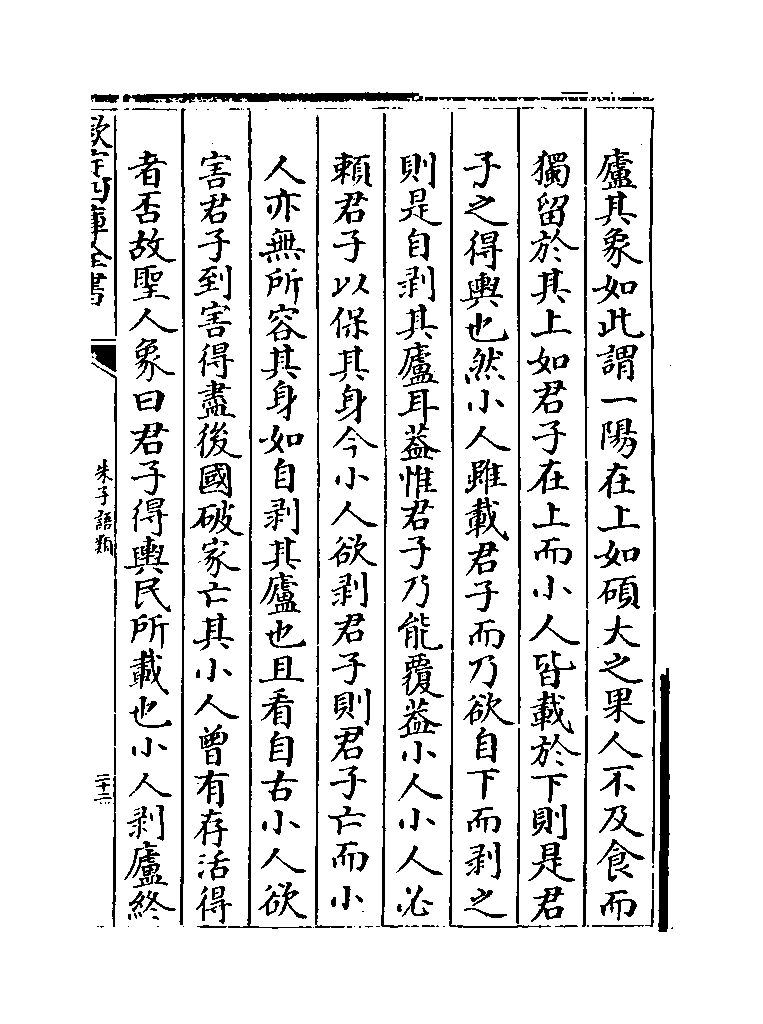 廬其象如此謂一陽在上如碩大之果人不及食而
獨留於其上如君子在上而小人皆載於下則是君
子之得輿也然小人雖載君子而乃欲自下而剥之
則是自剥其廬耳葢惟君子乃能覆葢小人小人必
賴君子以保其身今小人欲剥君子則君子亡而小
人亦無所容其身如自剥其廬也且看自古小人欲
害君子到害得盡後國破家亡其小人曾有存活得
者否故聖人象曰君子得輿民所載也小人剥廬終
欽定四庫全書
朱子語類
二十二